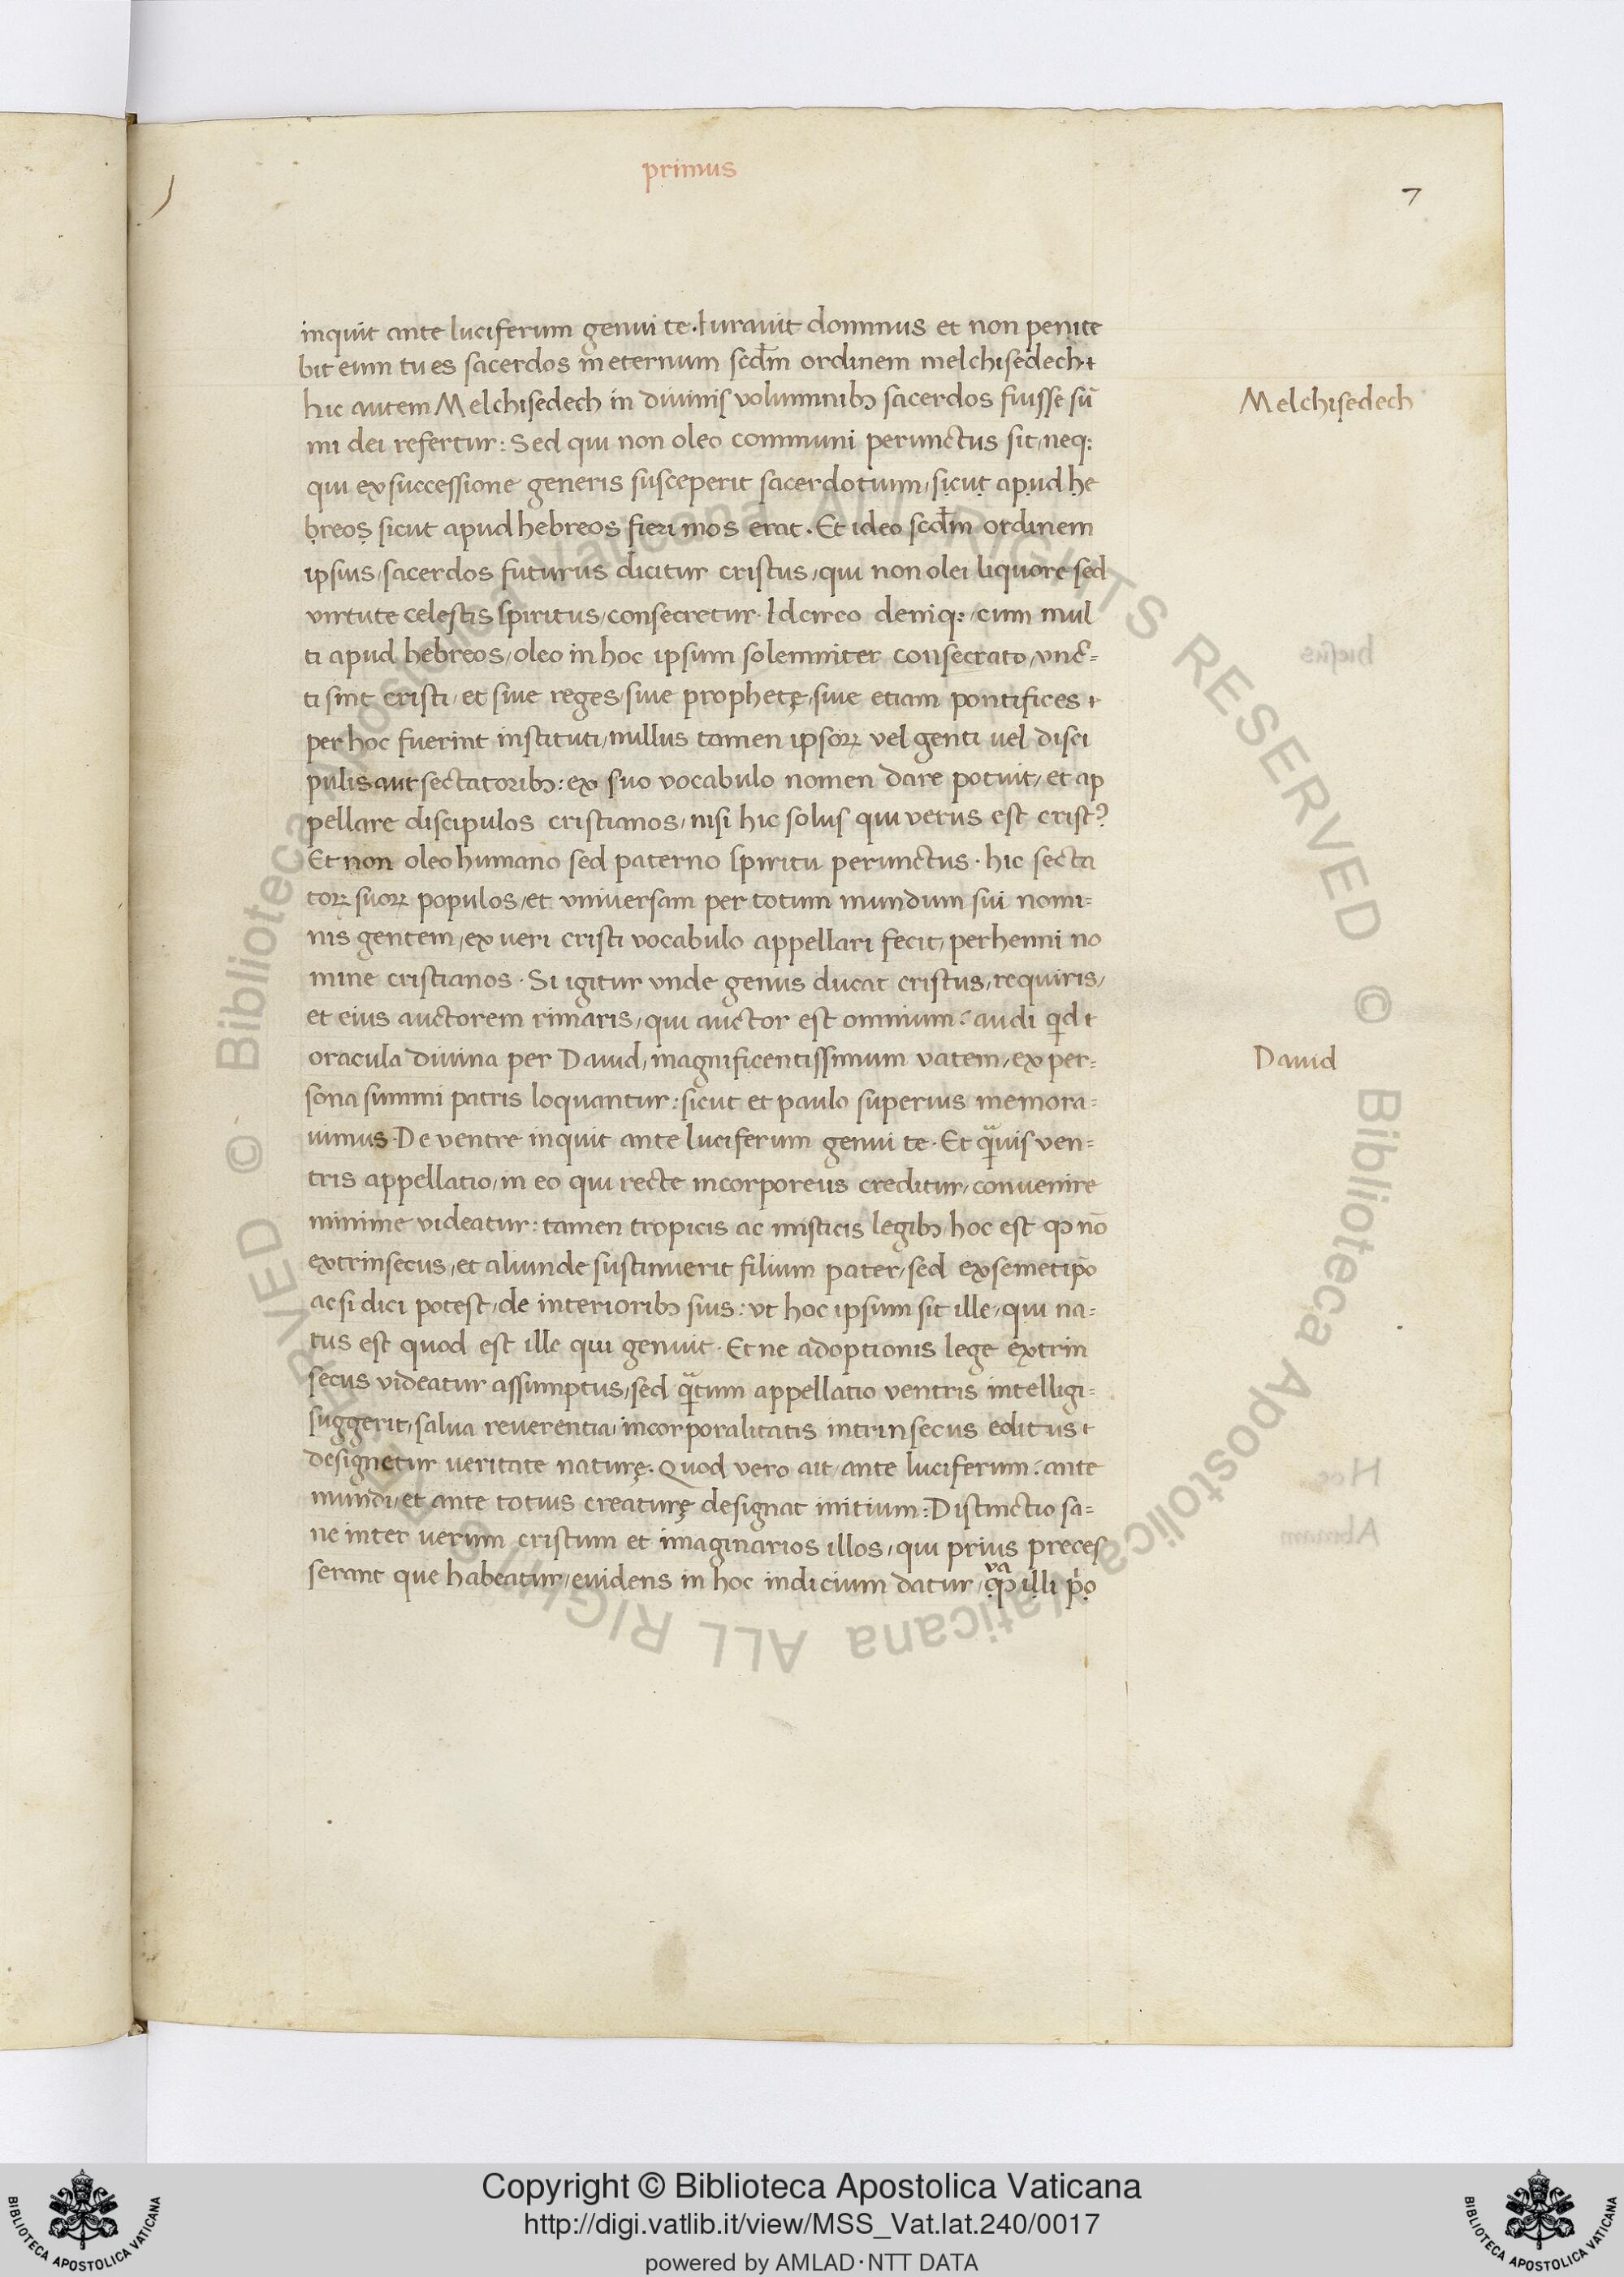 primus
7
inquit ante luciferum genui te. Iurauit dominus et non penite
bit eum tu es sacerdos in eternum scdm̄ ordinem melchisedech
hic autem Melchisedech in diuinis voluminibꝫ sacerdos fuisse sū
Melchisedech
mi dei refertur: Sed qui non oleo communi perunctus sit, neqꝫ
qui ex successione generis susceperit sacerdotium, sicut apud he
breos sicut apud hebreos fieri mos erat. Et ideo scdm̄ ordinem
ipsius, sacerdos futurus dicitur cristus, qui non olei liquore sed
virtute celestis spiritus, consecretur. Idcirco deniqꝫ, cum mul
ti apud hebreos, oleo in hoc ipsum solemniter consecrato, unc̄=
ti sint cristi, et siue reges, siue prophetę, siue etiam pontifices
per hoc fuerint instituti, nullus tamen ipsoꝝ vel genti uel disci
pulis aut sectatoribꝫ: ex suo vocabulo nomen dare potuit, et ap
pellare discipulos cristianos, nisi hic solus qui verus est cristꝰ
Et non oleo humano sed paterno spiritu perunctus. hic secta
toꝝ suoꝝ populos, et vniuersam per totum mundum sui nomi=
nis gentem, ex ueri cristi vocabulo appellari fecit, perhenni no
mine cristianos. Si igitur vnde genus ducat cristus, requiris,
et eius auctorem rimaris, qui auctor est omnium: audi qͥd
oracula diuina per Dauid, magnificentissimum vatem, ex per=
Dauid
sona summi patris loquantur: sicut et paulo superius memora=
uimus. De ventre inquit ante luciferum genui te. Et qͣ̄uis ven=
tris appellatio, in eo qui recte incorporeus creditur, conuenire
minime videatur: tamen tropicis ac misticis legibꝫ, hoc est ꝙ nō
extrinsecus, et aliunde sustinuerit filium pater, sed ex semetip̄o
ac si dici potest, de interioribꝫ suis: vt hoc ipsum sit ille, qui na=
tus est quod est ille qui genuit. Et ne adoptionis lege extrin
secus videatur assumptus, sed qͣ̄tum appellatio ventris intelligi=
suggerit, salua reuerentia, incorporalitatis intrinsecus editus
designetur ueritate naturę. Quod vero ait, ante luciferum: ante
mundi, et ante totius creaturę designat initium: Distinctio sa=
ne inter uerum cristum et imaginarios illos, qui prius preces
serant que habeatur, euidens in hoc indicium datur, ꝙ illi p̄o
va
Copyright © Biblioteca Apostolica Vaticana
http://digi.vatlib.it/view/MSS_Vat.lat.240/0017
powered by AMLAD·NTT DATA